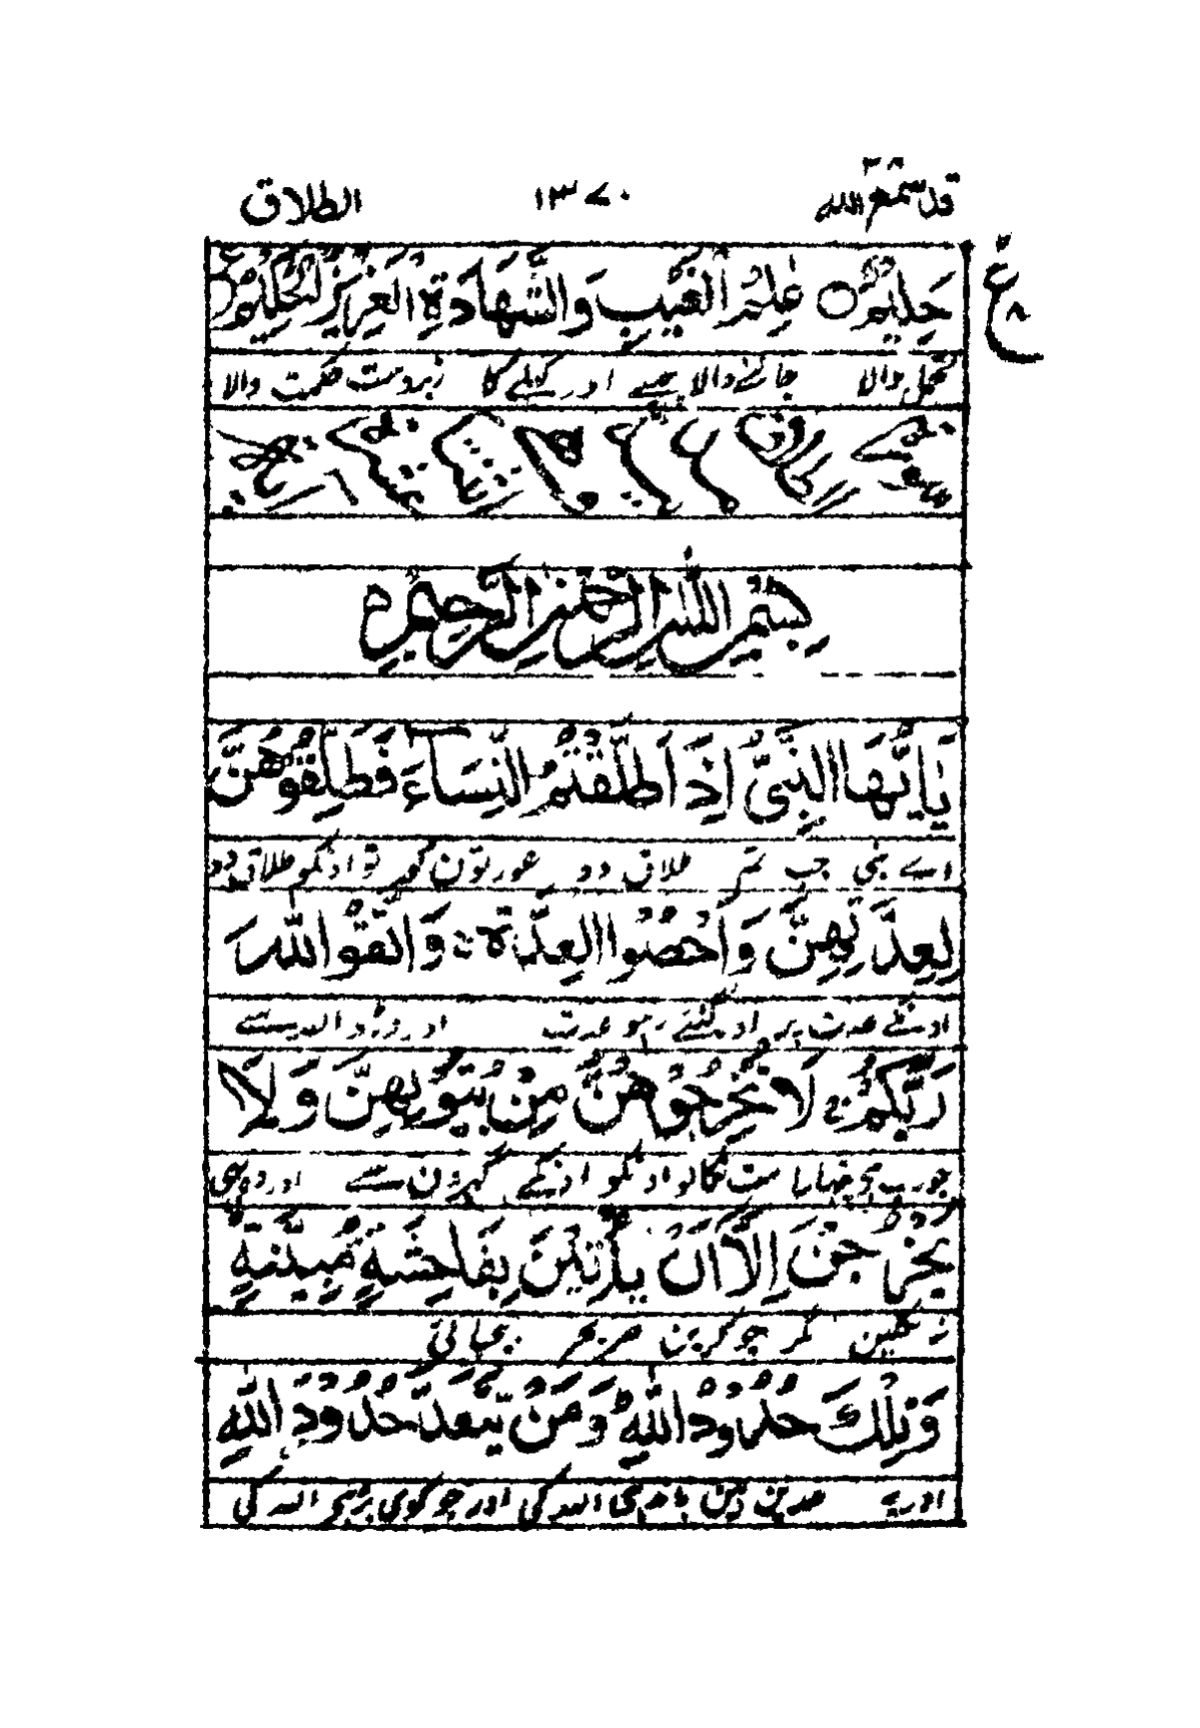 قد سمع الله ٢٨ ١٣٧٠ الطلاق
حَلِيْمٌ ○ عٰلِمُ الْغَيْبِ وَالشَّهَادَةِ الْعَزِيْزُ الْحَكِيْمُ
ع ٨
تحمل والا جاننے والا چھپے اور کہلے کا زبردست حکمت والا
بِسْمِ اللّٰهِ الرَّحْمٰنِ الرَّحِيْمِ
يٰاَيُّهَا النَّبِيُّ اِذَا طَلَّقْتُمُ النِّسَآءَ فَطَلِّقُوْهُنَّ
اے نبی جب تم طلاق دو عورتون کو تو انکو طلاق دو
لِعِدَّتِهِنَّ وَاَحْصُوا الْعِدَّةَ وَاتَّقُوا اللّٰهَ
انکے عدت پر اور گنتے رہو عدت اور ڈرو اللہ سے
رَبَّكُمْ لَا تُخْرِجُوْهُنَّ مِنْ بُيُوْتِهِنَّ وَلَا
جو رب ہے تمہارا مت نکالو انکو انکے گہرون سے اور وہ بھی
يَخْرُجْنَ اِلَّآ اَنْ يَّاْتِيْنَ بِفَاحِشَةٍ مُّبَيِّنَةٍ
نہ نکلین مگر جو کرین صریح بیحیائی
وَتِلْكَ حُدُوْدُ اللّٰهِ وَمَنْ يَّتَعَدَّ حُدُوْدَ اللّٰهِ
اور یہ حدین ہین باندھی اللہ کی اور جو کوی بڑہے اللہ کی